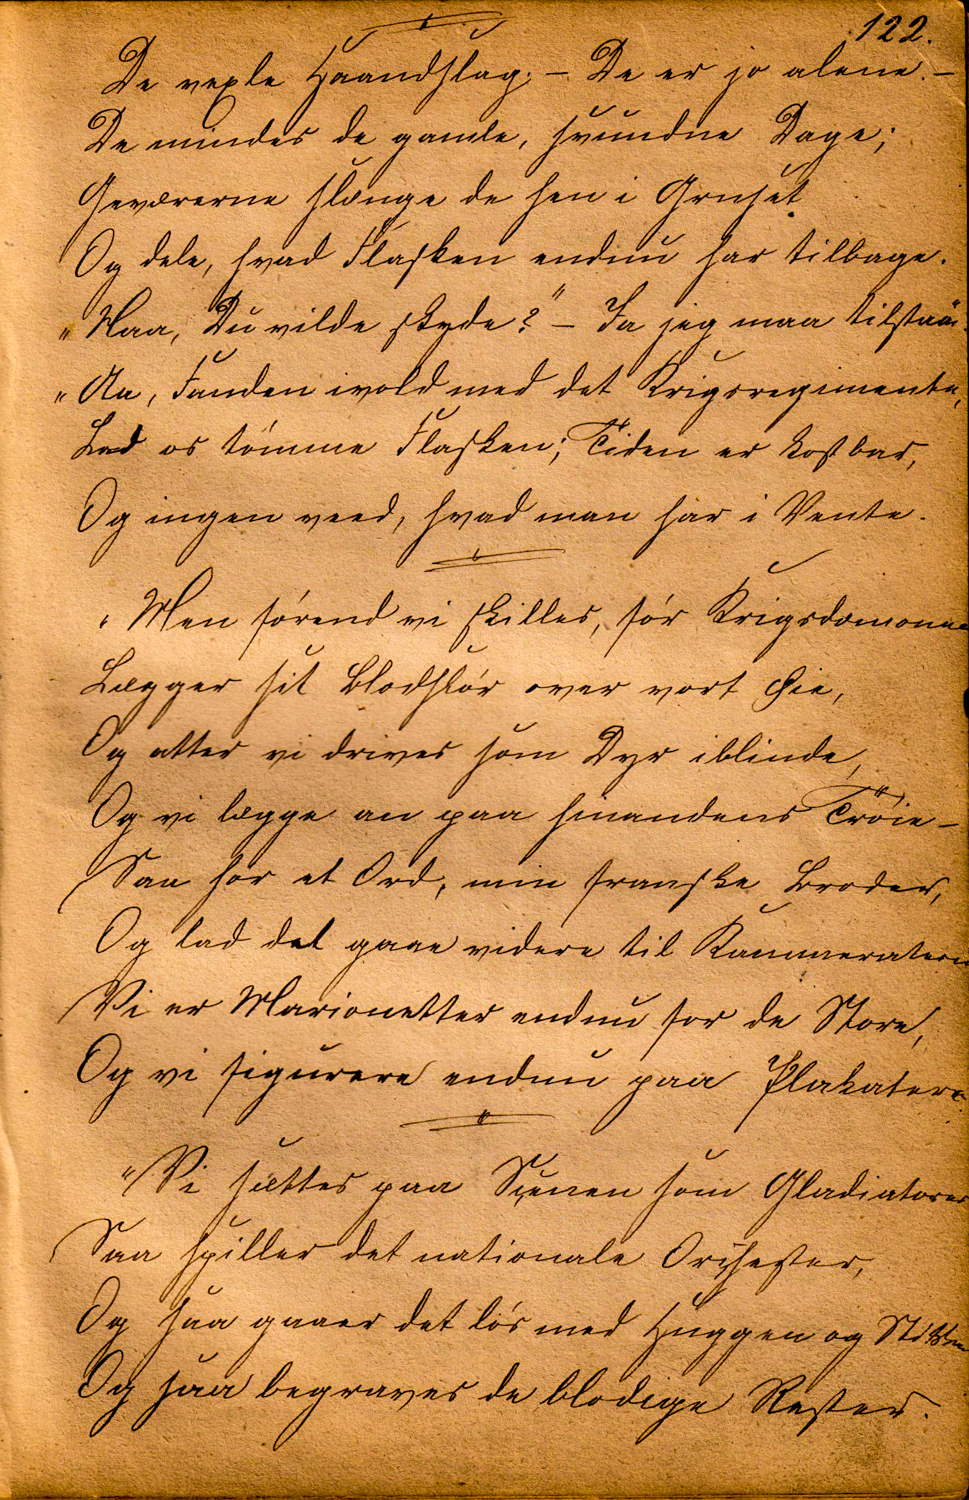 122.
De vexle Haandslag; – De er jo alene. –
De mindes de gamle, svundne Dage;
Geværerne slænge de hen i Gruset
Og dele, hvad Flasken endnu har tilbage.
„Naa, Du vilde skyde?" – Ja jeg maa tilstaa
„Aa, Fanden ivold med det Krigsregimente,
Lad os tömme Flasken; Tiden er kostbar,
Og ingen veed, hvad man har i Vente.
„Men förend vi skilles, för Krigsdæmonen
Lægger sit Blodslör over vort Øie,
Og atter vi drives som Dyr iblinde,
Og vi lægge an paa hinandens Tröie –
Saa hør et Ord, min franske Broder,
Og lad det gaae videre til Kammeraterne
Vi er Marionetter endnu for de Store,
Og vi figurere endnu paa Plakaterne
"Vi sættes paa Scenen som Gladiatorer
Saa spiller det nationale Orchester,
Og saa gaaer det lös med Huggen og
Og saa begraves de blodige Rester.